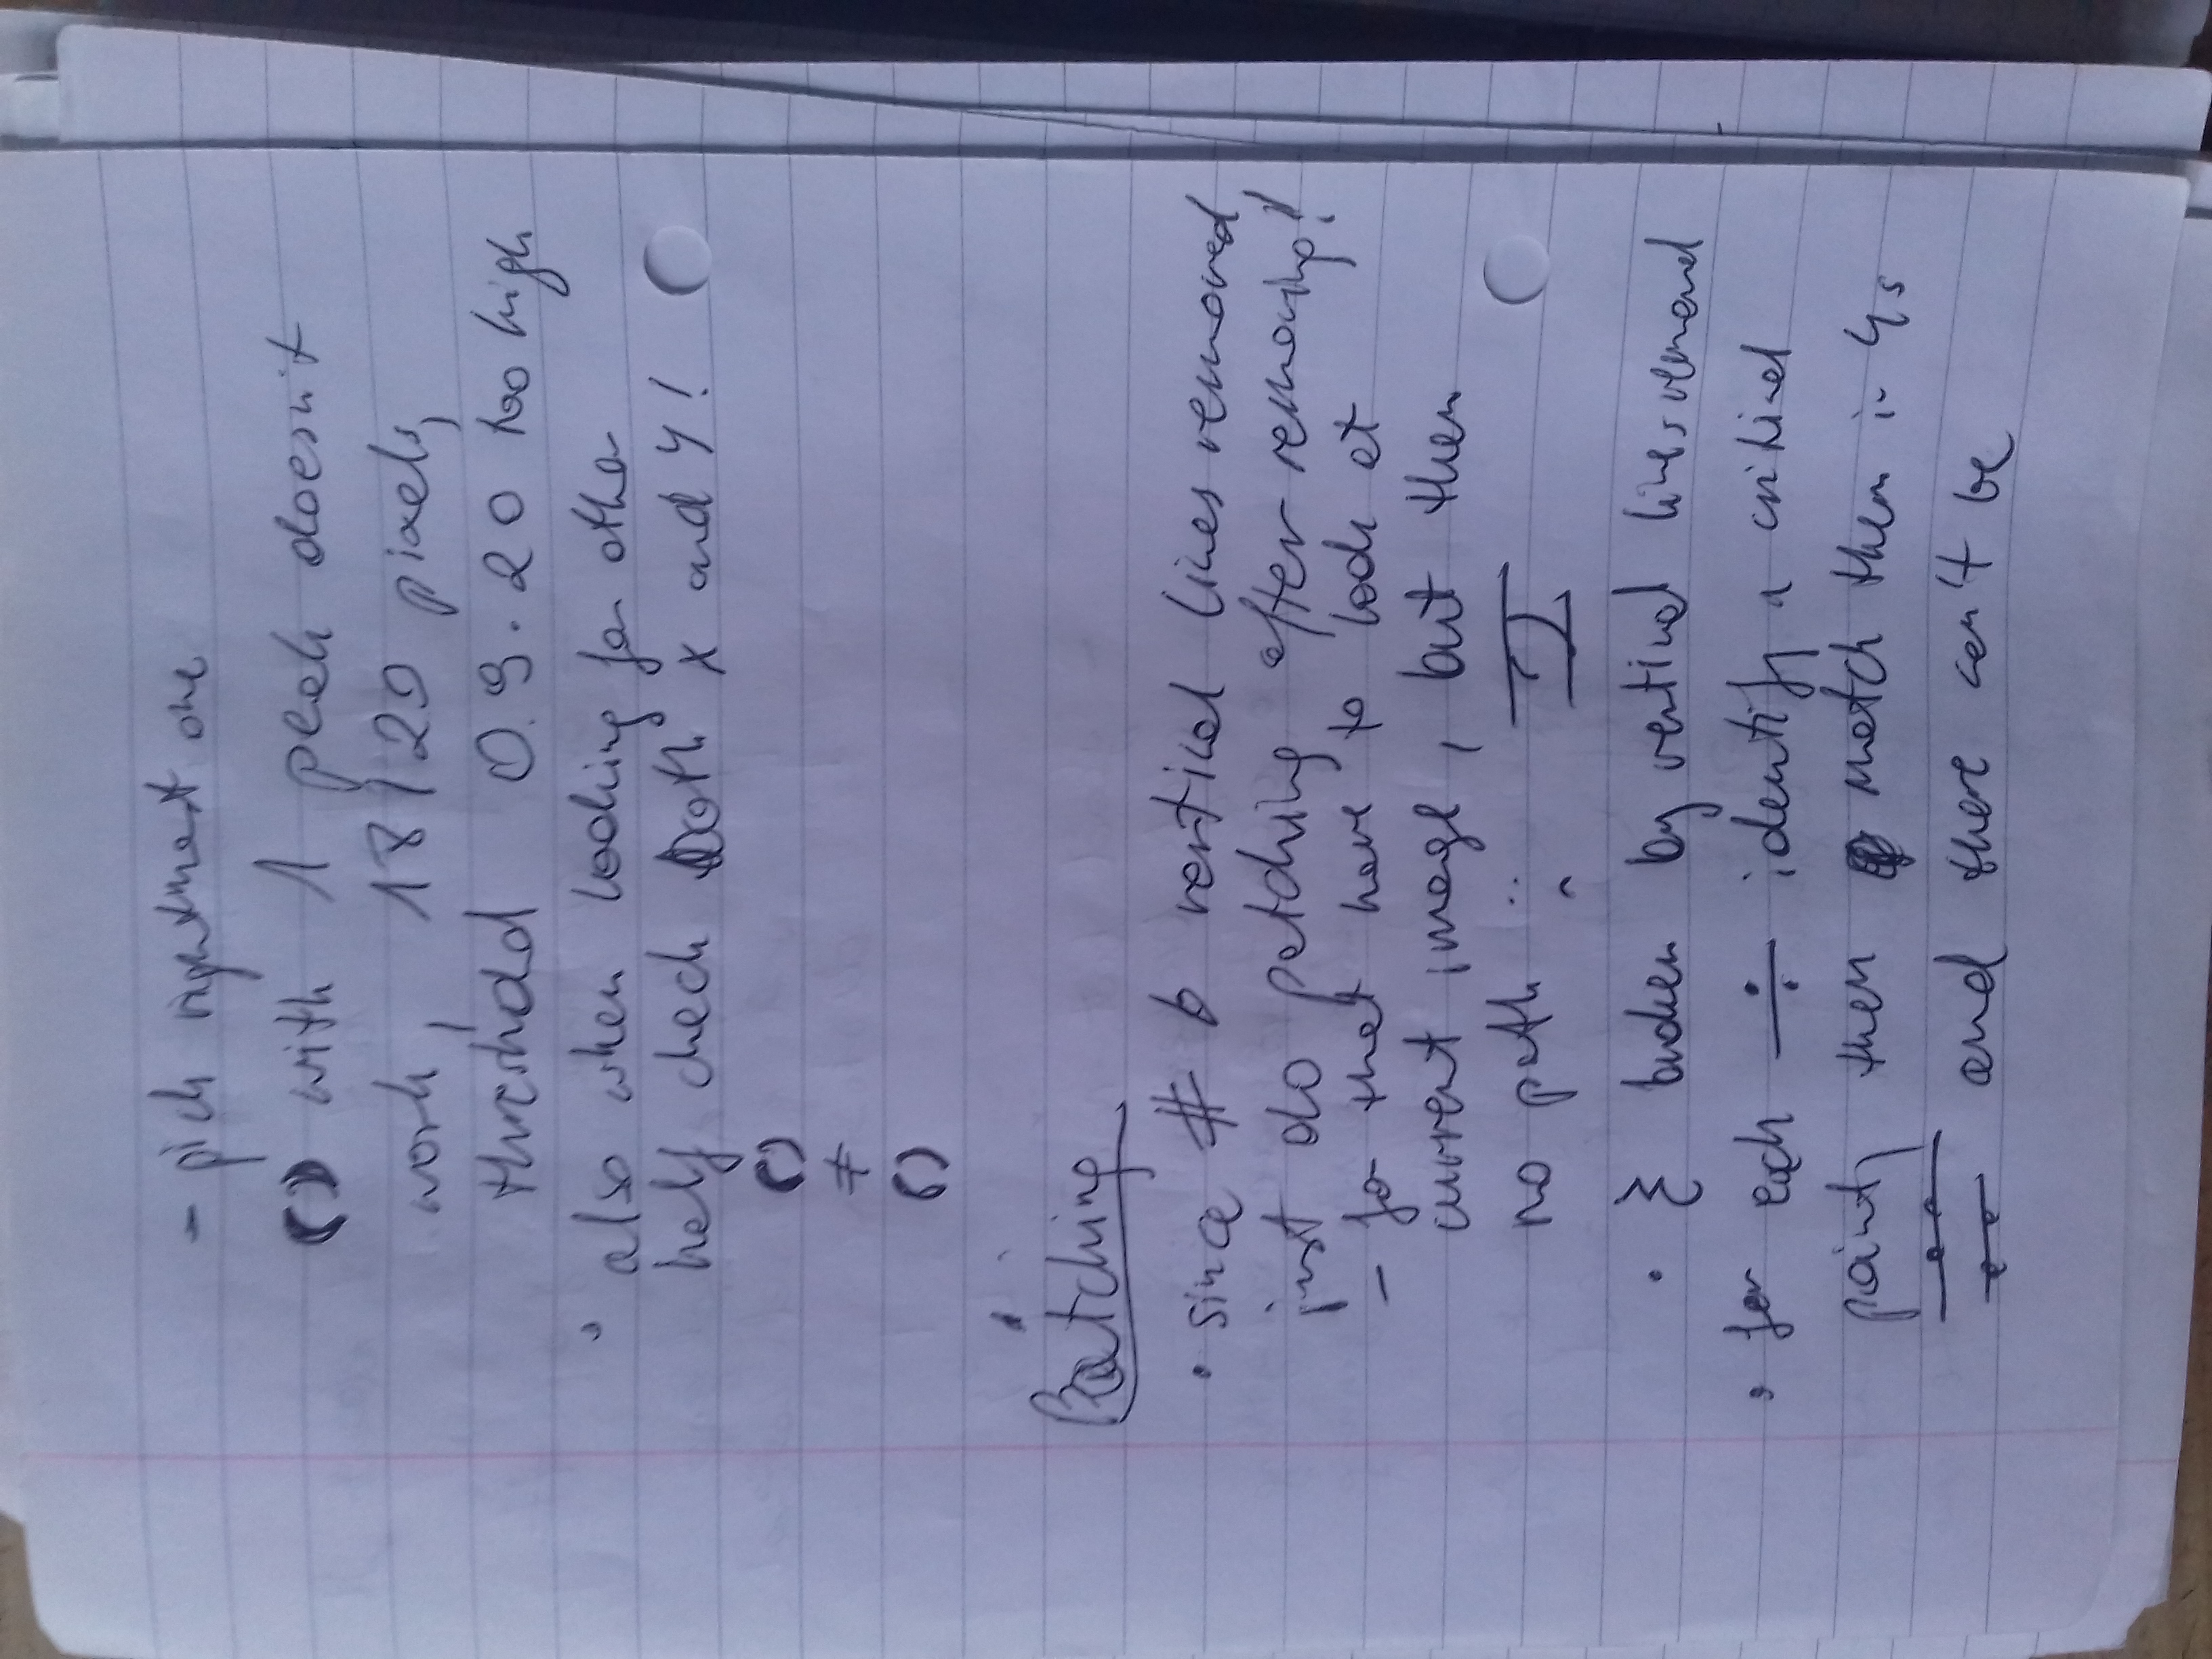 - pick rightmost one
with 1 peak doesn't
work, 18/20 pixels,
threshold 0.9·20 too high
• also when looking for other
half check both x and y!
≠
Patching
• since # b vertical lines removed,
just do patching after removing!
- for that have to look at
current image, but then
no path :(
• broken by vertical lines removed
• for each ÷ identify a critical
point, then match them in 4s
and there can't be